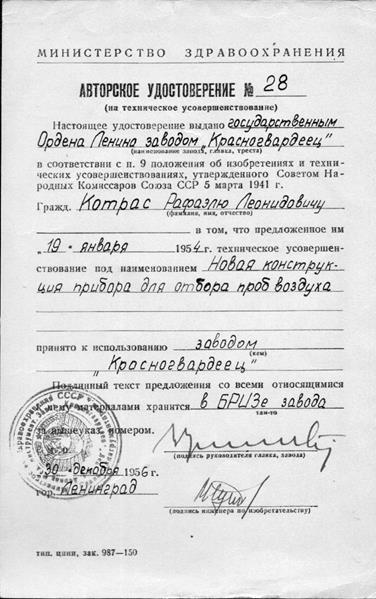 МИНИСТЕРСТВО ЗДРАВООХРАНЕНИЯ
АВТОРСКОЕ УДОСТОВЕРЕНИЕ № 28
(на техническое усовершенствование)
Настоящее удостоверение выдано государственным
Ордена Ленина заводом „Красногвардеец"
(наименование завода, главка, треста)
в соответствии с п. 9 положения об изобретениях и техни-
ческих усовершенствованиях, утвержденного Советом На-
родных Комиссаров Союза ССР 5 марта 1941 г.
Гражд. Котрас Рафаэлю Леонидовичу
(фамилия, имя, отчество)
в том, что предложенное им
„19" января 1954 г. техническое усовершен-
ствование под наименованием Новая конструк-
ция прибора для отбора проб воздуха
принято к использованию заводом
(кем)
„Красногвардеец"
Подлинный текст предложения со всеми относящимися
к нему материалами хранятся в БРИЗе завода
там-то
за вышеуказ. номером.
(подпись руководителя главка, завода)
30 декабря 1956 г.
гор. Ленинград
(подпись инженера по изобретательству)
тип. цини, зак. 987—150